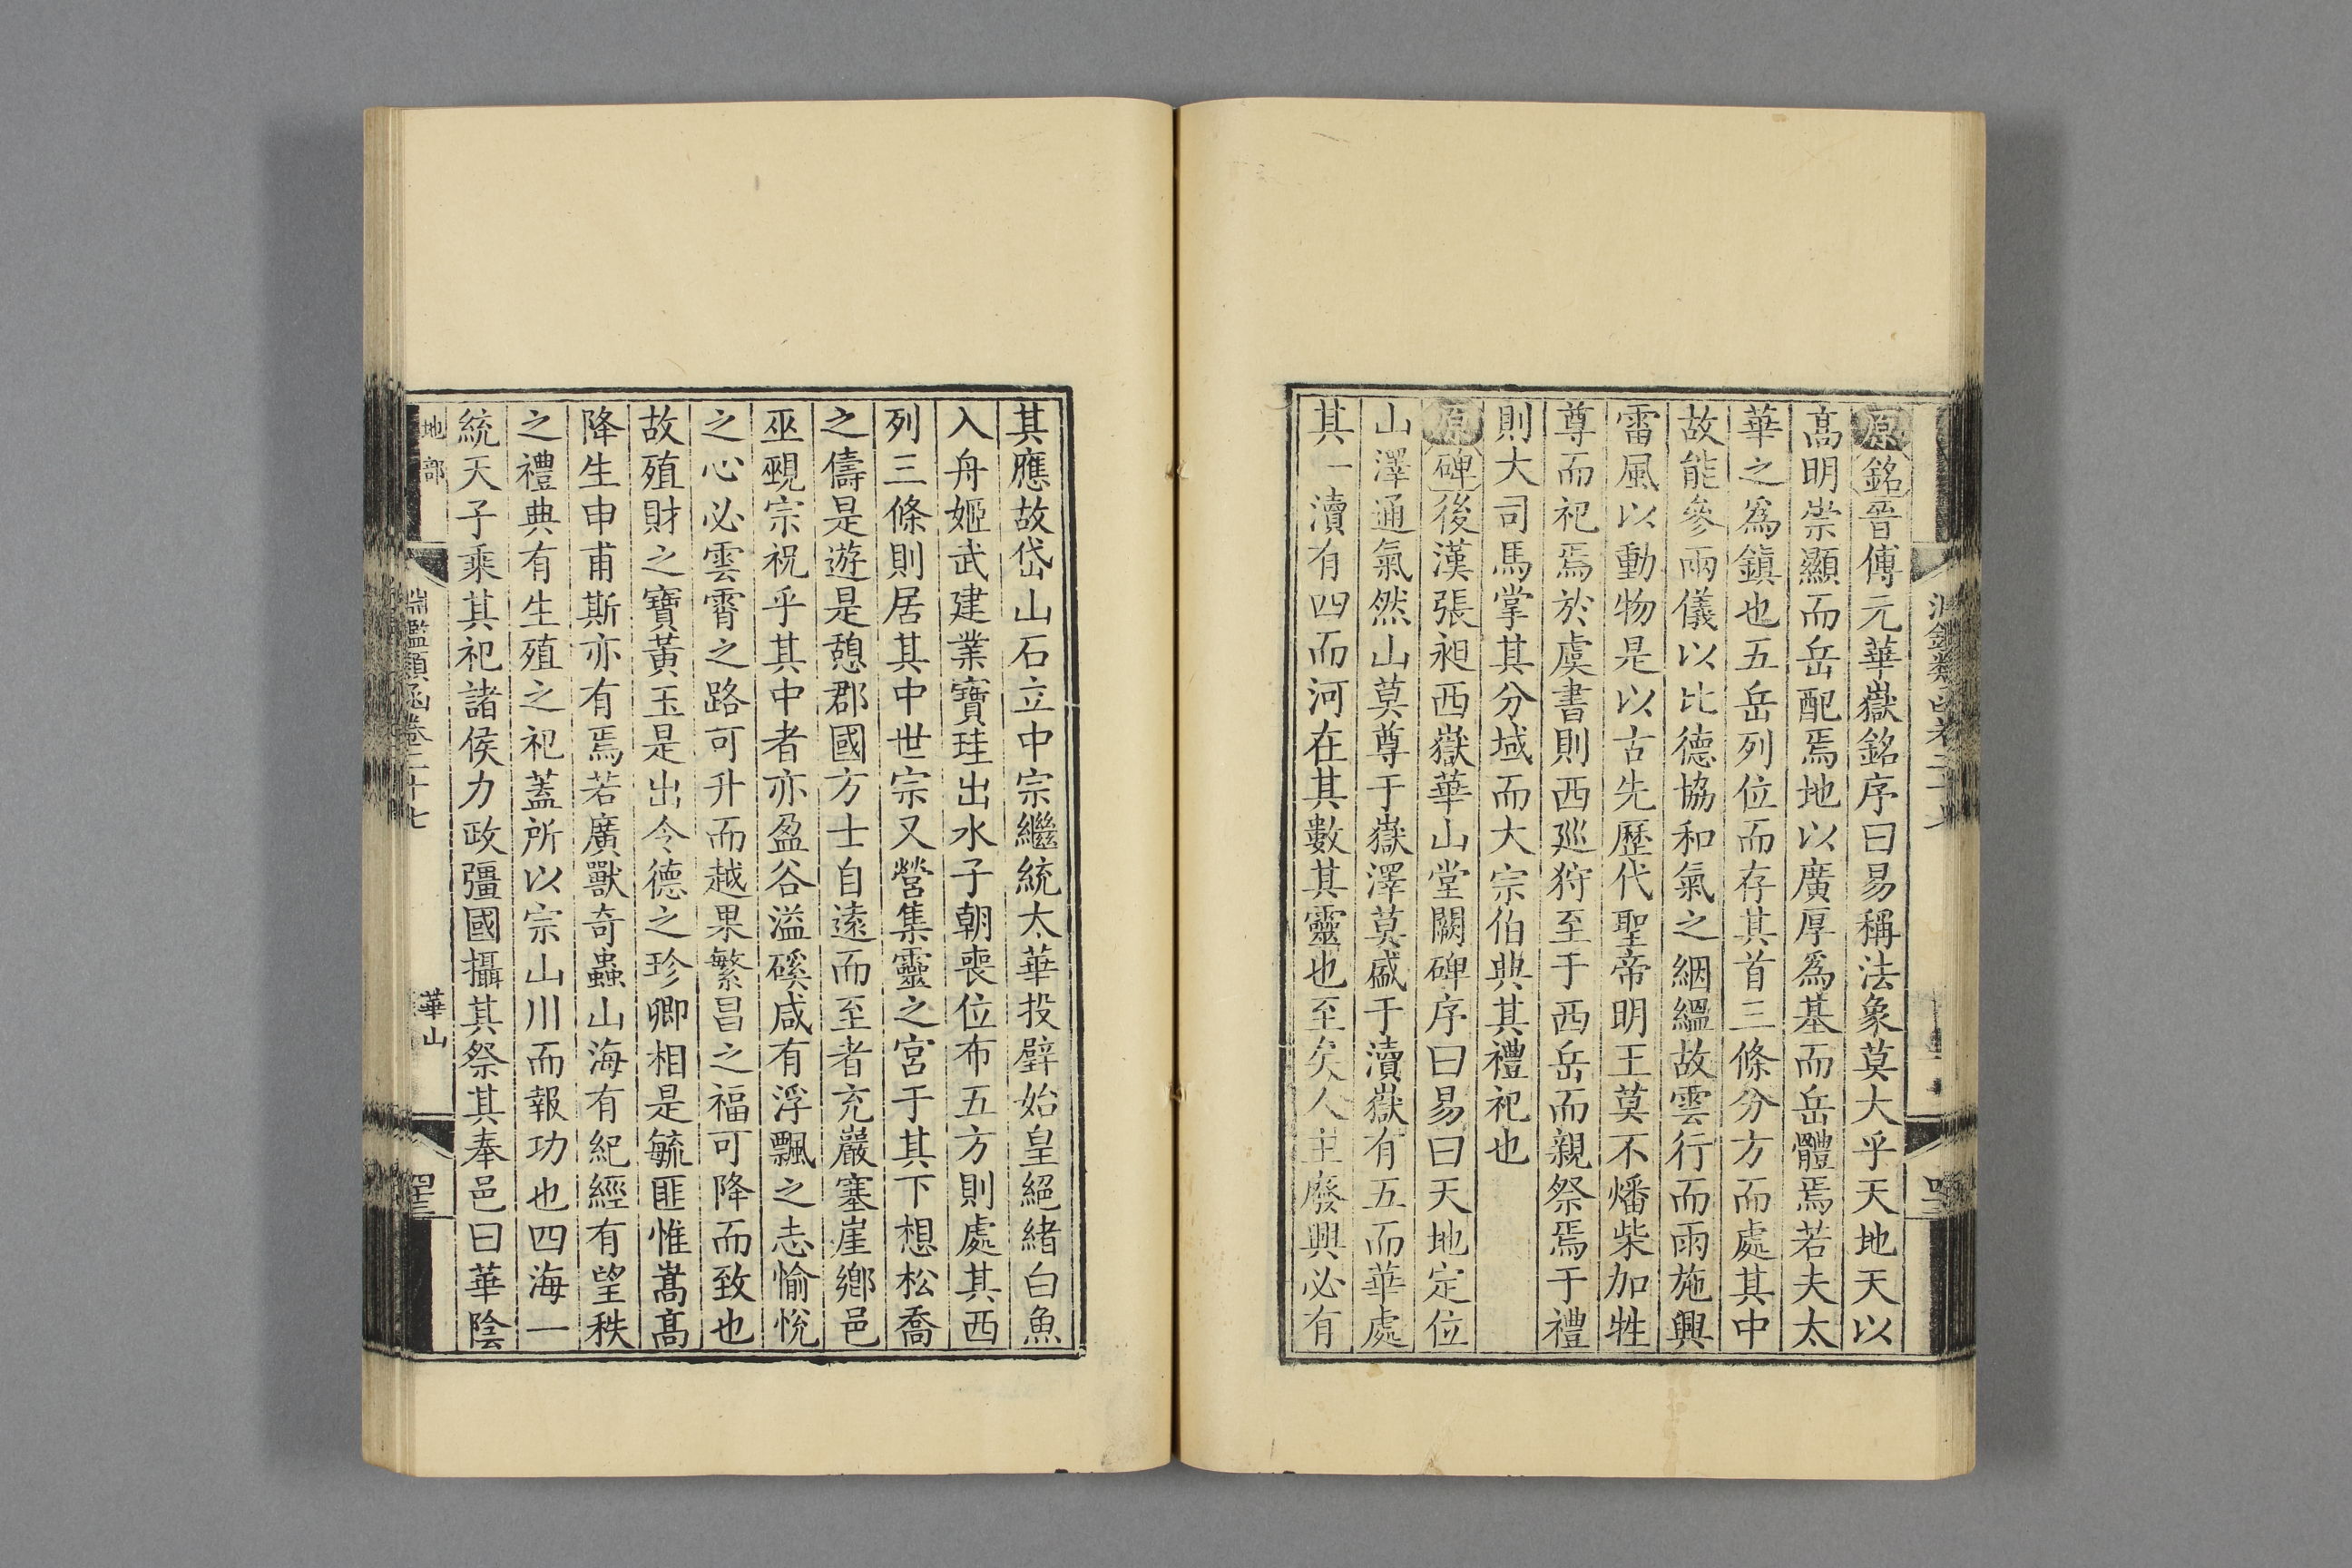 原銘晉傅元華嶽銘序曰易稱法象莫大乎天地天以
高明崇顯而岳配焉地以廣厚爲基而岳體焉若夫太
華之爲鎭也五岳列位而存其首三條分方而處其中
故能參兩儀以比德協和氣之絪縕故雲行而雨施興
雷風以動物是以古先歷代聖帝明王莫不燔柴加牲
尊而祀焉於虞書則西廵狩至于西岳而親祭焉于禮
則大司馬掌其分域而大宗伯典其禮祀也
原碑後漢張昶西嶽華山堂闕碑序曰易曰天地定位
山澤通氣然山莫尊于嶽澤莫盛于瀆嶽有五而華處
其一瀆有四而河在其數其靈也至矣人主廢興必有
其應故岱山石立中宗繼統太華投璧始皇絕緒白魚
入舟姬武建業寶珪出水子朝喪位布五方則處其西
列三條則居其中世宗又營集靈之宮于其下想松喬
之儔是遊是憩郡國方士自遠而至者充巖塞崖鄉邑
巫覡宗祝乎其中者亦盈谷溢磎咸有浮飄之志愉悅
之心必雲霄之路可升而越果繁昌之福可降而致也
故殖財之寶黃玉是出令德之珍卿相是毓匪惟嵩高
降生申甫斯亦有焉若廣獸奇蟲山海有紀經有望秩
之禮典有生殖之祀蓋所以宗山川而報功也四海一
統天子乘其祀諸侯力政彊國攝其祭其奉邑曰華陰
地部
淵鑑類函卷二十七
華山